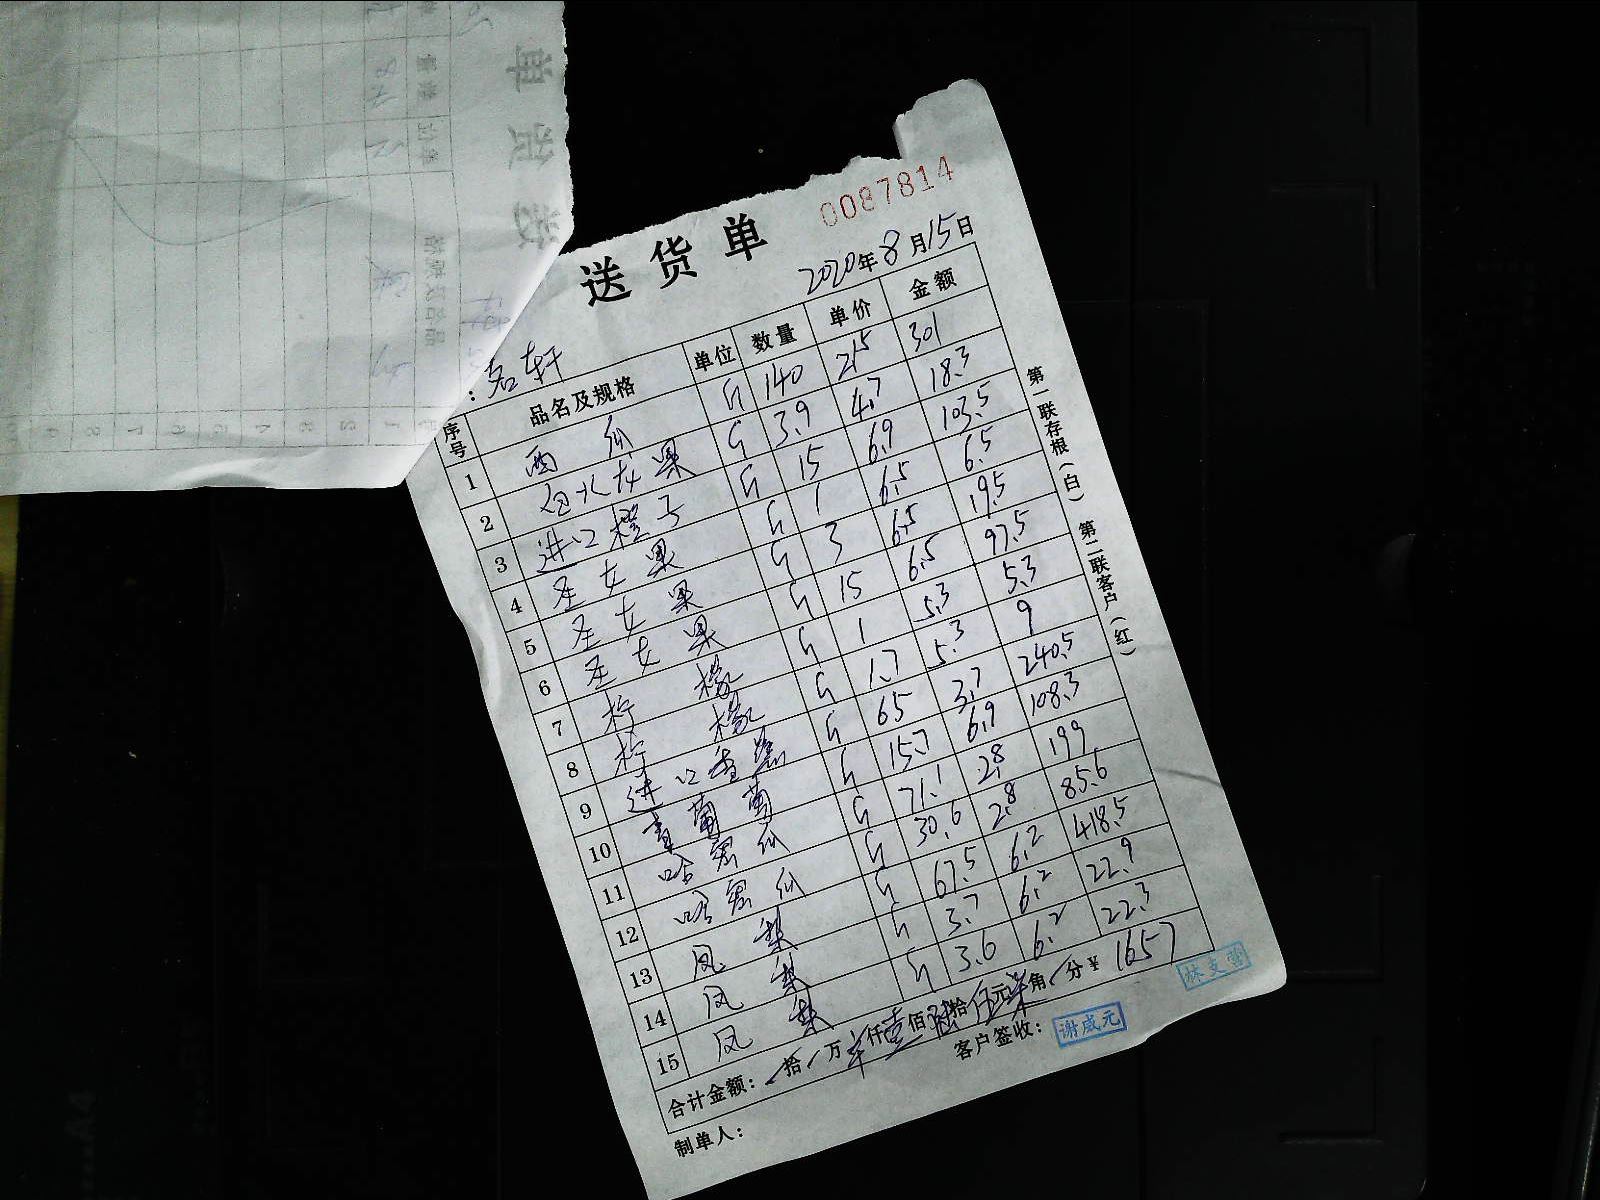 送货单
0087814
2020年8月15日
：茗轩
序号 品名及规格 单位 数量 单价 金额
1 西瓜 斤 140 2.15 301
2 白火龙果 斤 3.9 4.7 18.3
3 进口橙子 斤 15 6.9 103.5
4 圣女果 斤 1 6.5 6.5
5 圣女果 斤 3 6.5 19.5
6 圣女果 斤 15 6.5 97.5
7 柠檬 斤 1 5.3 5.3
8 柠檬 斤 1.7 5.3 9
9 进口香蕉 斤 65 3.7 240.5
10 青葡萄 斤 15.7 6.9 108.3
11 哈密瓜 斤 71.1 2.8 199
12 哈密瓜 斤 30.6 2.8 85.6
13 凤梨 斤 67.5 6.2 418.5
14 凤梨 斤 3.7 6.2 22.9
15 凤梨 斤 3.6 6.2 22.3
合计金额： 拾 万 仟 佰 拾 元 角 分 ¥ 1657
制单人：
客户签收： 谢咸元
林支营
第一联存根（白） 第二联客户（红）